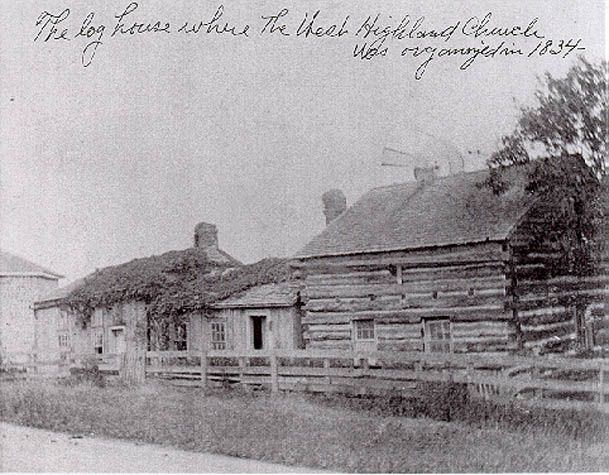 The log house where The West Highland Church
Was organized in 1834-